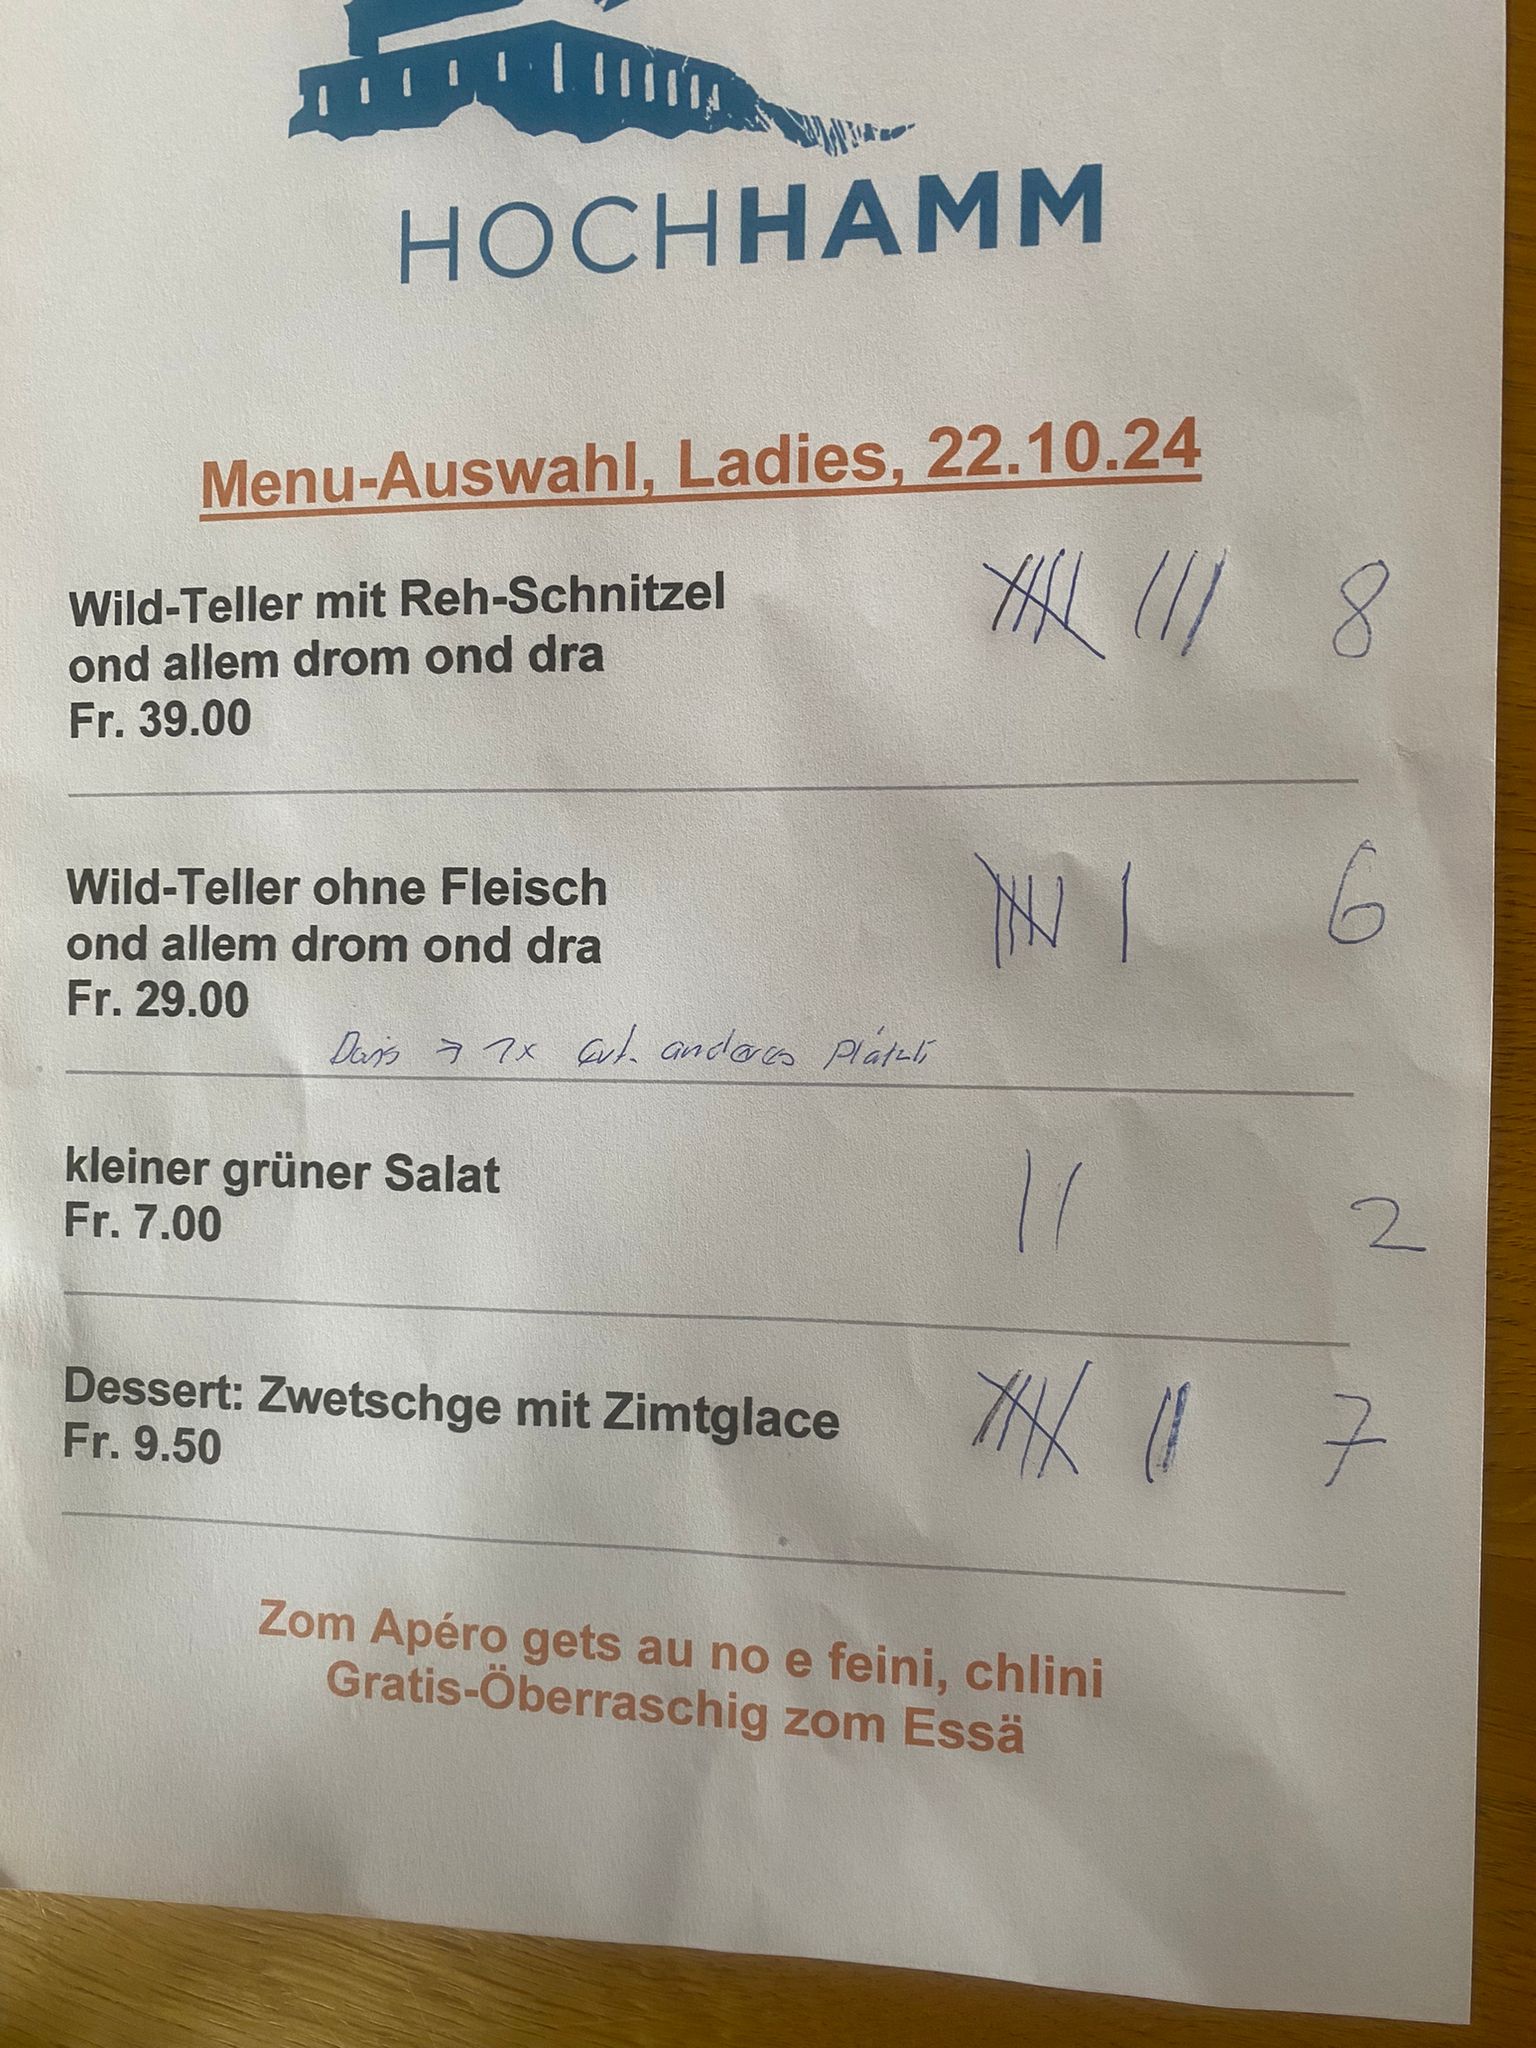 HOCHHAMM
Menu-Auswahl, Ladies, 22.10.24
Wild-Teller mit Reh-Schnitzel
ond allem drom ond dra
Fr. 39.00
8
Wild-Teller ohne Fleisch
ond allem drom ond dra
Fr. 29.00
6
→ 1x evt. anderes Plätzli
kleiner grüner Salat
Fr. 7.00
2
Dessert: Zwetschge mit Zimtglace
Fr. 9.50
7
Zom Apéro gets au no e feini, chlini
Gratis-Öberraschig zom Essä